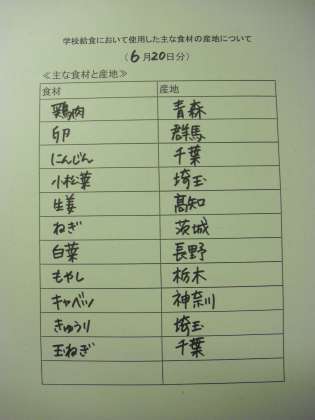 学校給食において使用した主な食材の産地について
(6月20日分)
≪主な食材と産地≫
食材 産地
鶏肉 青森
卵 群馬
にんじん 千葉
小松菜 埼玉
生姜 高知
ねぎ 茨城
白菜 長野
もやし 栃木
キャベツ 神奈川
きゅうり 埼玉
玉ねぎ 千葉